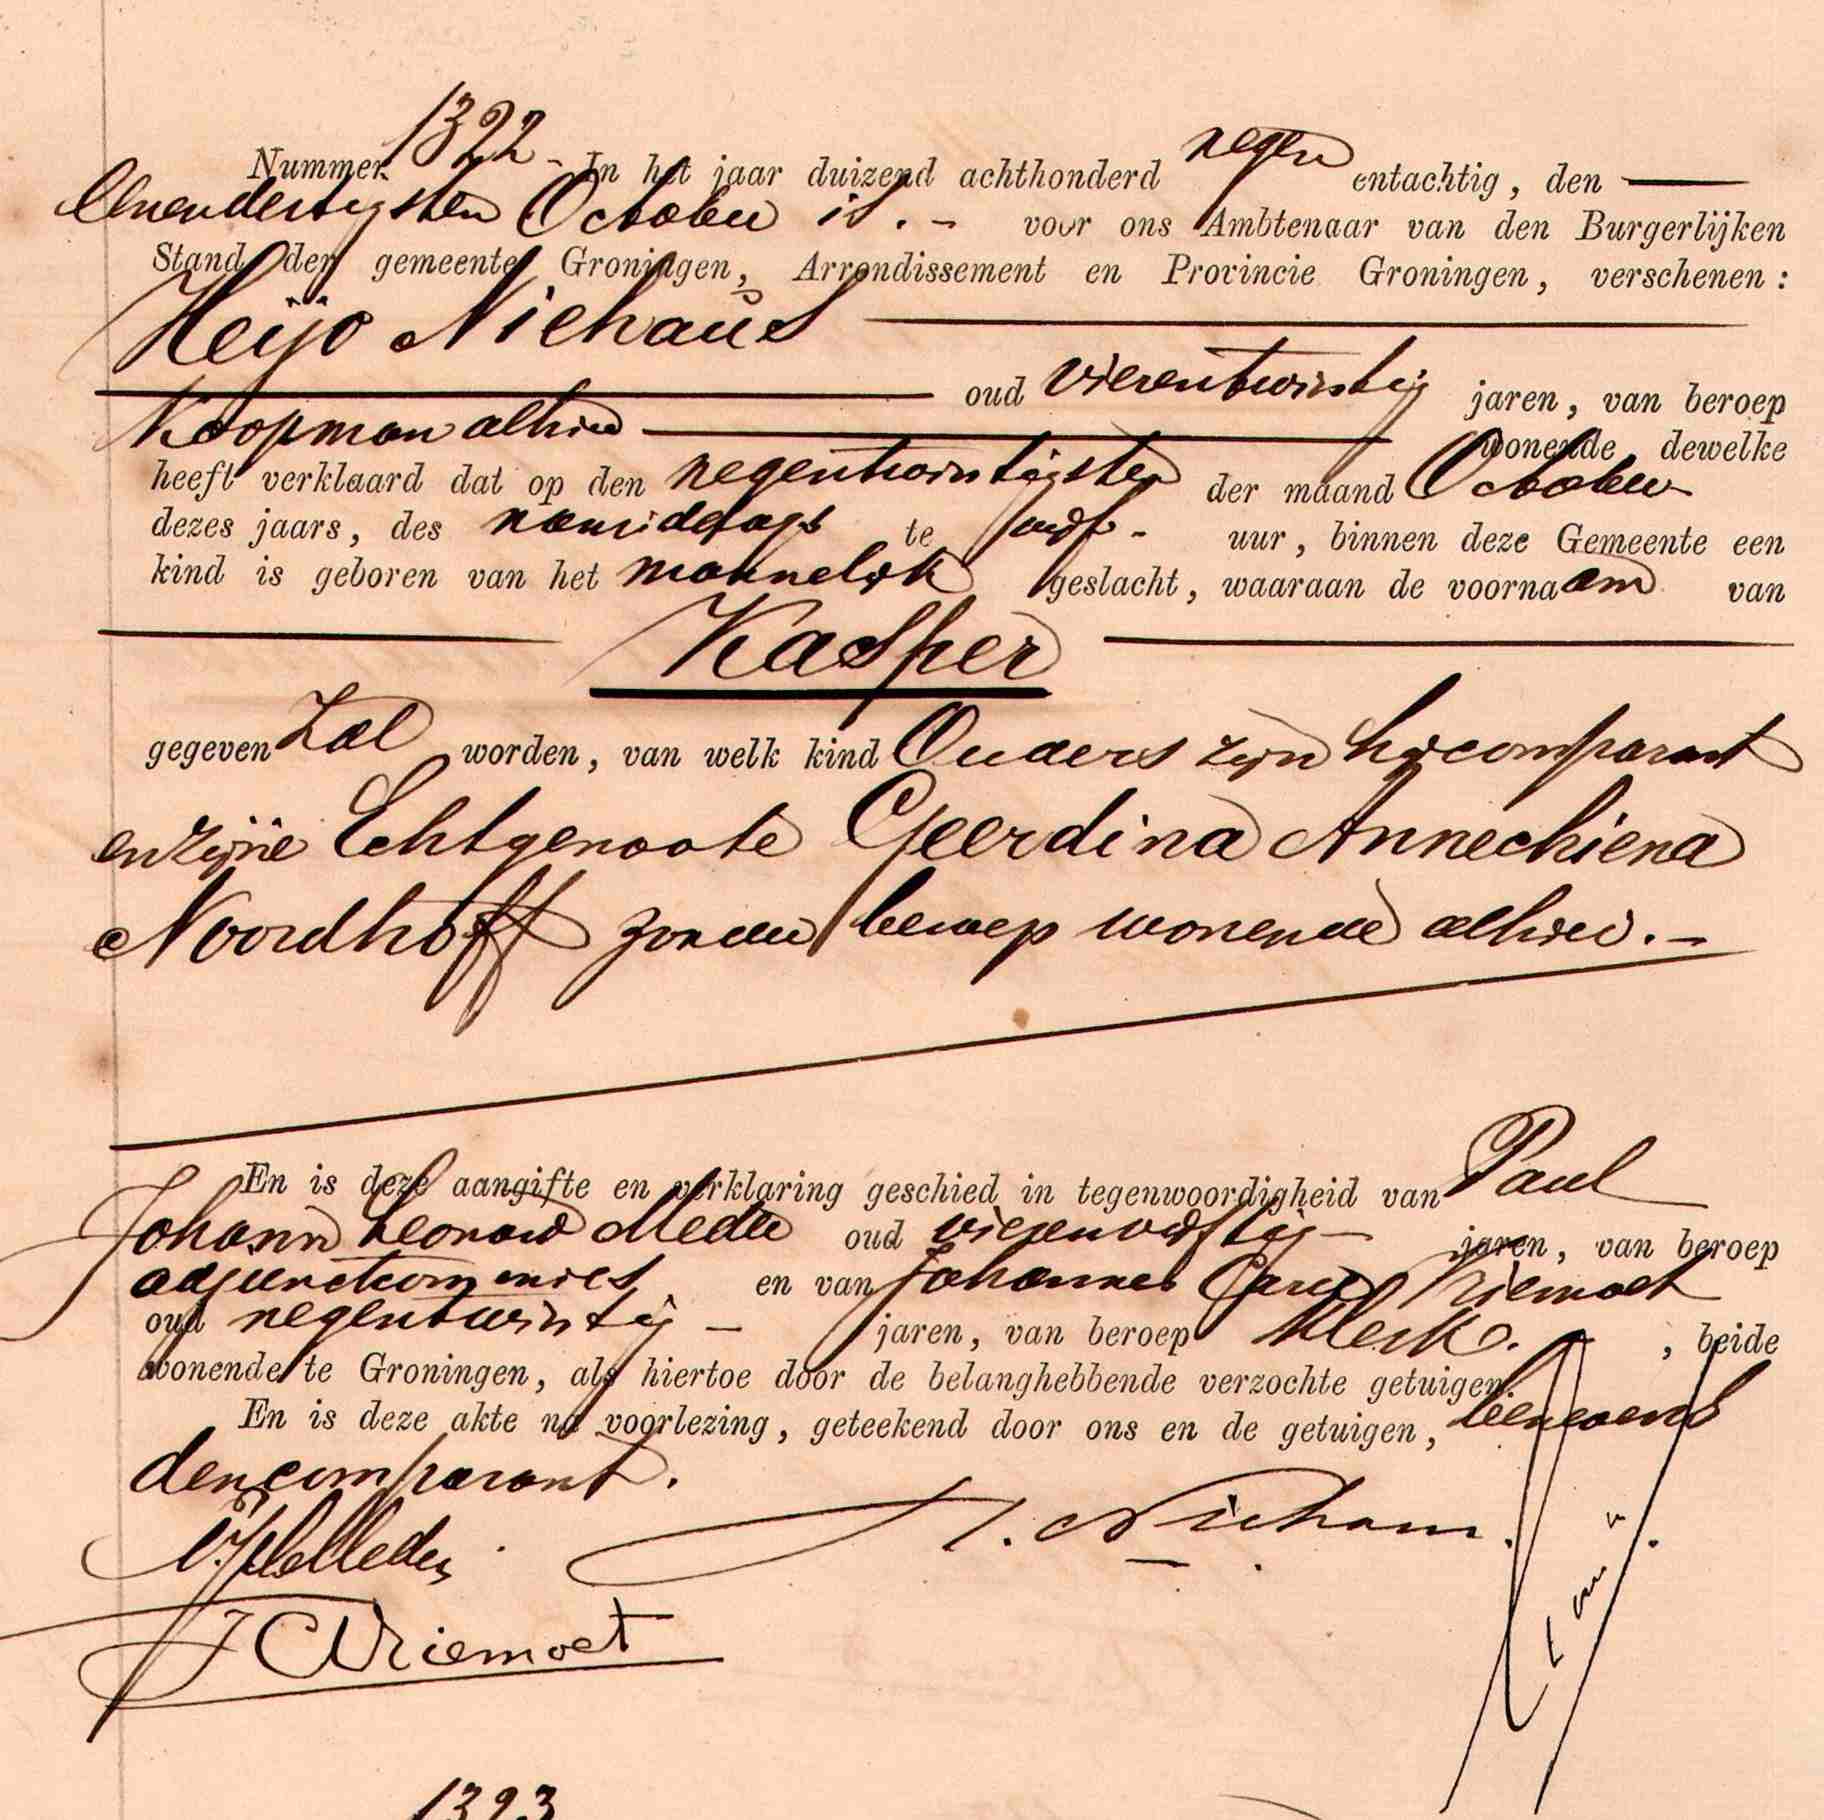 Nummer 1322 - In het jaar duizend achthonderd negen entachtig, den
Eenendertigsten October is. - voor ons Ambtenaar van den Burgerlijken
Stand der gemeente Groningen, Arrondissement en Provincie Groningen, verschenen:
Heijo Niehaus
oud vierentwintig jaren, van beroep
Koopman alhier wonende dewelke
heeft verklaard dat op den negentwintigsten der maand October
dezes jaars, des namiddags te uur, binnen deze Gemeente een
kind is geboren van het mannelijk geslacht, waaraan de voornaam van
Kasper
gegeven zal worden, van welk kind Ouders zijn hij comparant
en zijne Echtgenoote Geerdina Annechiena
Noordhoff zonder beroep wonende alhier. -
En is deze aangifte en verklaring geschied in tegenwoordigheid van Paul
Johann Leonard oud vierenvijftig - jaren, van beroep
adjunctcommies en van Johannes Carel Vriemoet
oud negentwintig - jaren, van beroep klerk. , beide
wonende te Groningen, als hiertoe door de belanghebbende verzochte getuigen.
En is deze akte na voorlezing, geteekend door ons en de getuigen, benevens
den comparant.
H. Niehaus.
J C Vriemoet
1323